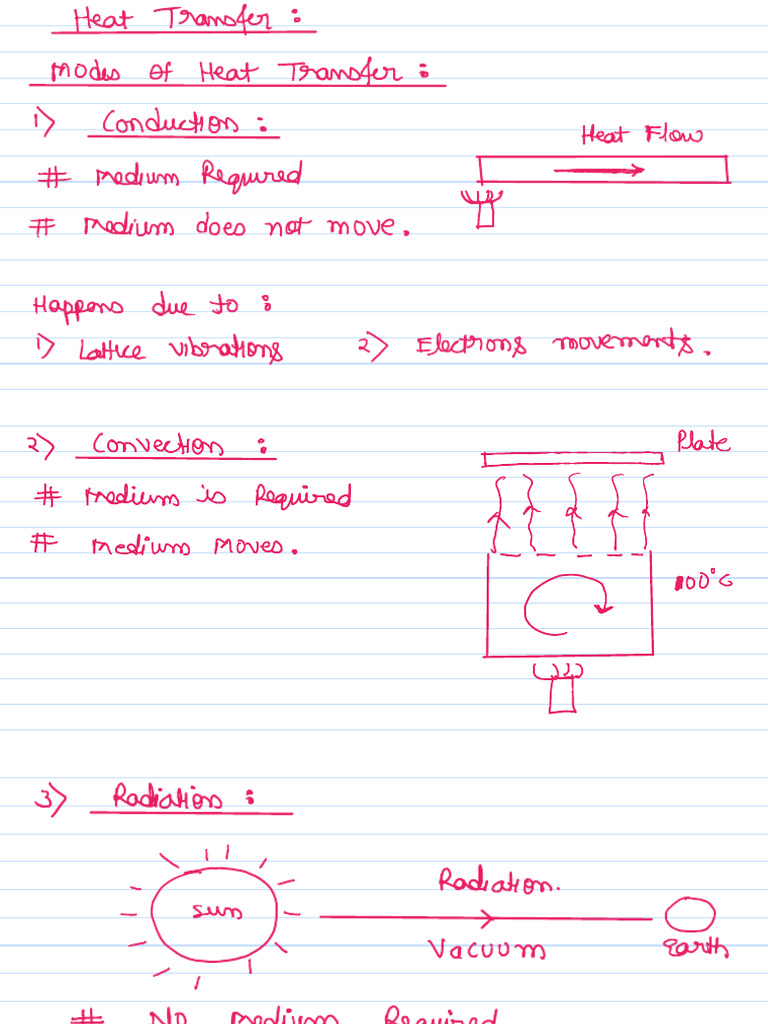 Heat Transfer :
Modes of Heat Transfer :
1) Conduction :
Heat Flow
# Medium Required
# Medium does not move.
Happens due to :
1) Lattice vibrations 2) Electrons movements.
2) Convection :
Plate
# Medium is Required
# Medium Moves.
100°C
3) Radiation :
Sun
Radiation.
Vacuum
Earth
# No medium Required